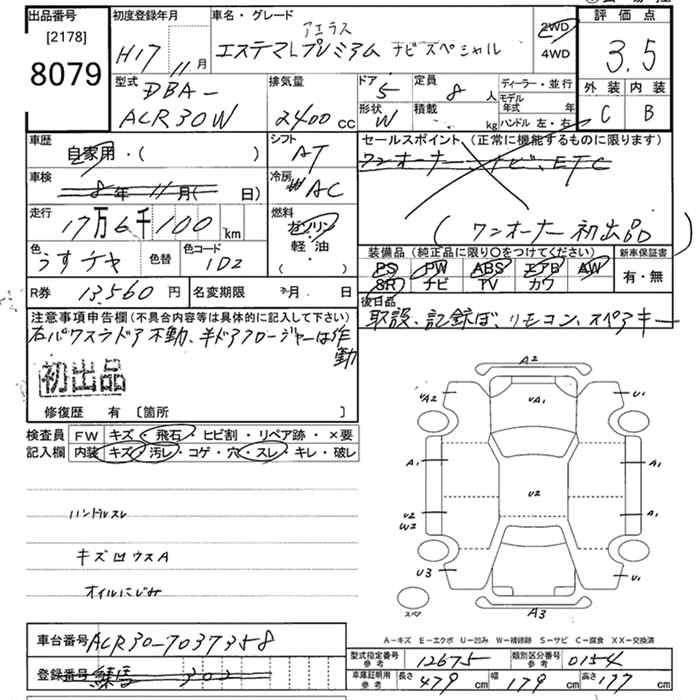 出品番号
[2178]
8079
初度登録年月
H17 11月
車名・グレード
アエラス
エスティマLプレミアム ナビスペシャル
2WD
4WD
評価点
3.5
外装 内装
C B
型式
DBA-
ACR30W
排気量
2400 CC
ドア 5
形状 W
定員 8 人
積載 kg
ディーラー・並行
モデル年式 年
ハンドル 左・右
車歴
自家用・( )
シフト
AT
車検
8年11月( 日)
冷房
AC
走行
17万6千100 km
燃料
ガソリン
軽・油
( )
色
うすチャ
色替
色コード
1D2
R券 13,560円
名変期限 月 日
セールスポイント、(正常に機能するものに限ります)
ワンオーナー ナビ、ETC
(ワンオーナー初出品)
装備品(純正品に限り○をつけてください)
新車保証書
PS PW ABS エアB AW
SR ナビ TV カワ
有・無
後日品
取説、記録ぼ、リモコン、スペアキー
注意事項申告欄(不具合内容等は具体的に記入して下さい)
右パワスラドア不動、半ドアクロージャーは作動
初出品
修復歴 有 〔箇所 〕
検査員 FW キズ・飛石・ヒビ割・リペア跡・×要
記入欄 内装 キズ・汚レ・コゲ・穴・スレ・キレ・破レ
ハンドルスレ
キズ凹ウスA
オイルにじみ
A2
UA2
UA1
U1
A1
A1
U2
U2
W2
A1
U3
U1
スペア
A3
A-キズ E-エクボ U-凹み W-補修跡 S-サビ C-腐食 XX-交換済
車台番号 ACR30-7037358
登録番号 練馬 302
型式指定番号
参考
12675
類別区分番号
参考
0154
車庫証明用
参考
長さ 479 cm 幅 179 cm 高さ 177 cm